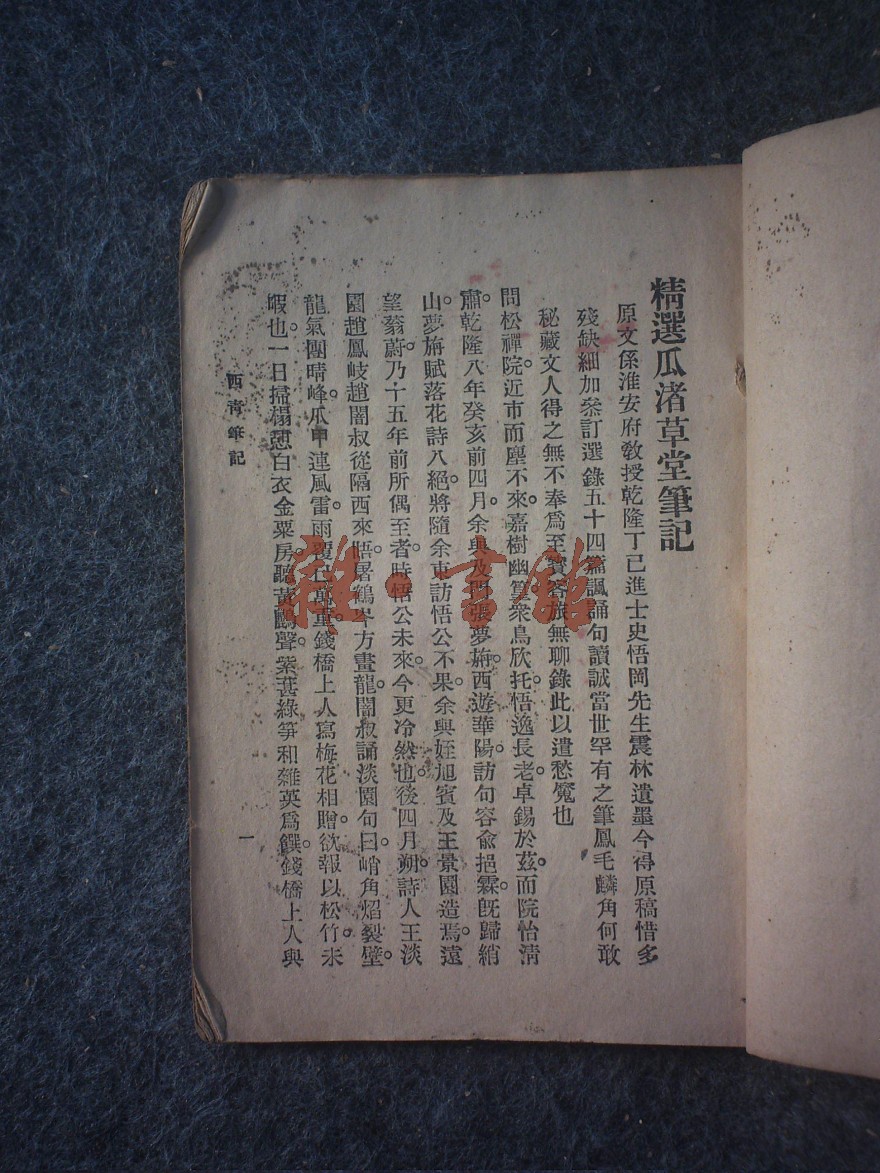 精選瓜渚草堂筆記
原文係淮安府教授乾隆丁巳進士史悟岡先生震林遺墨今得原稿惜多
殘缺細加參訂選錄五十四篇諷誦句讀誠當世罕有之筆鳳毛麟角何敢
秘藏文人得之無不奉爲至寶客旅無聊錄此以遣愁魔也
問松禪院。近市而塵不來。嘉樹幽篁衆鳥欣托。悟逸長老。卓錫於茲。而院怡清
肅。乾隆八年癸亥前四月。余與及門張夢旃西遊華陽。訪句容兪挹霖。旣歸綃
山。夢旃賦落花詩八絕。將隨余東訪悟公不果。余與姪旭賓及王景園造焉。遠
望蓊蔚。乃十五年前所偶至者。時悟公未來。今更冷然也。後四月朔。詩人王淡
園趙鳳岐趙闇叔從隔西來。悟屠鶴岑方畫龍。闇叔誦淡園句曰。峭角焰裂壁。
龍氣團晴峰。爪甲連風雷。雨覆已萬重。錢橋上人寫梅花相贈。欲報以松竹。未
暇也。一日掃榻憩白衣金粟房。聽黃鸝聲。紫葚綠笋和雜英爲饌。錢橋上人與
西青筆記
一
雜·書館